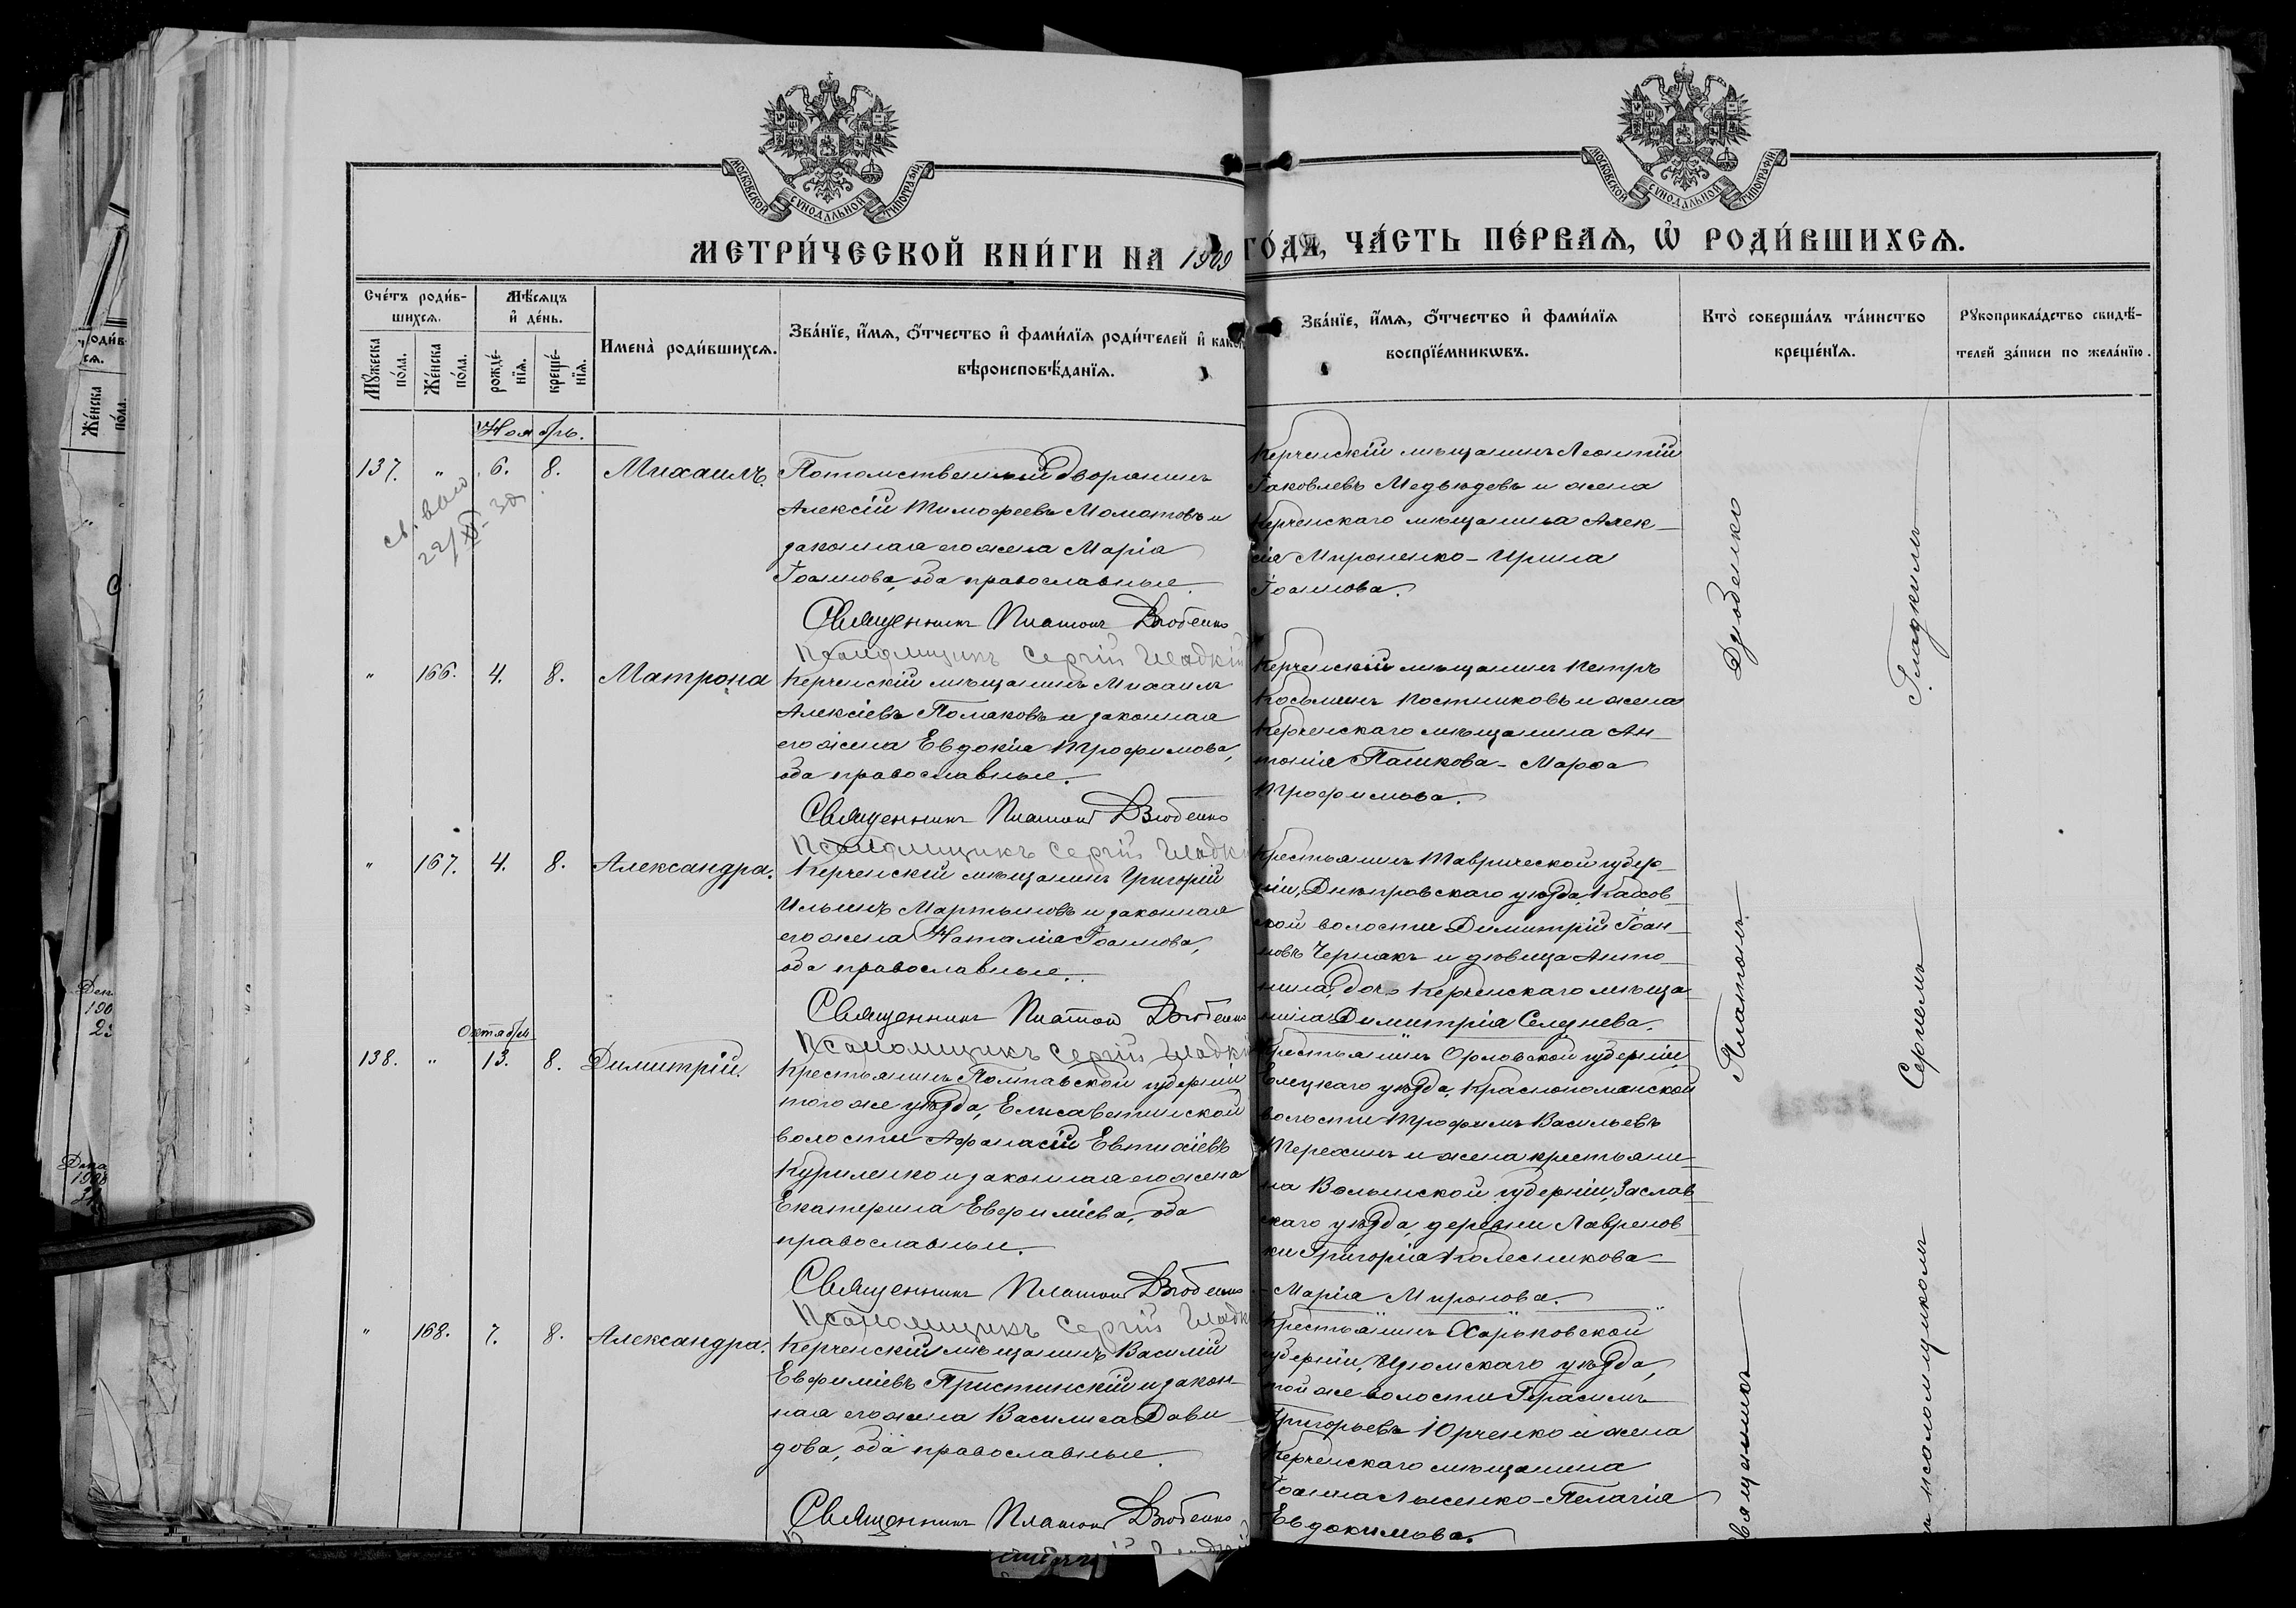 МОСКОВСКОЙ СѴНОДАЛЬНОЙ ТИПОГРАФІИ
МОСКОВСКОЙ СѴНОДАЛЬНОЙ ТИПОГРАФІИ
МЕТРИ́ЧЕСКОЙ КНИ́ГИ НА 1909 ГО́ДА, ЧА́СТЬ ПЕ́РВАѦ, Ѡ҆ РОДИ́ВШИХСѦ.
Сче́тъ роди́в-
шихсѧ.
Мꙋ́жеска по́ла.
Же́нска по́ла.
Мѣ́сѧцъ
и҆ де́нь.
рожде́-нїѧ.
креще́-нїѧ.
Имена̀ роди́вшихсѧ.
Зва́нїе, и҆́мѧ, ѻ҆́тчество и҆ фами́лїѧ роди́телей и҆ како
вѣроисповѣ́данїѧ.
Зва́нїе, и҆́мѧ, ѻ҆́тчество и҆ фами́лїѧ
воспрїе́мникѡвъ.
Кто̀ соверша́лъ та́инство
креще́нїѧ.
Рꙋкоприкла́дство свидѣ́-
телей за́писи по жела́нїю.
Ноябрь.
137. " 6. 8. Михаилъ.
Потомственный дворянинъ
Алексій Тимофеевъ Моматовъ и
законная его жена Марія
Іоаннова, оба православные.
Священникъ Платонъ Дзюбенко
Псаломщикъ Сергій Гладкій
Керченскій мѣщанинъ Леонтій
Іаковлевъ Медвѣдевъ и жена
Керченскаго мѣщанина Алек-
сія Мироненко - Ирина
Іоаннова.
" 166. 4. 8. Матрона
Керченскій мѣщанинъ Михаилъ
Алексіевъ Полаковъ и законная
его жена Евдокія Трофимова,
оба православные.
Священникъ Платонъ Дзюбенко
Псаломщикъ Сергій Гладкі
Керченскій мѣщанинъ Петръ
Косьминъ Постниковъ и жена
Керченскаго мѣщанина Ан-
тонія Пашкова - Марѳа
Трофимова.
" 167. 4. 8. Александра.
Керченскій мѣщанинъ Григорій
Ильинъ Мартыновъ и законная
его жена Наталія Іоаннова,
оба православные.
Священникъ Платон Дзюбенко
Псаломщикъ Сергій Гладкі
Крестьянинъ Таврической губер-
ніи, Днѣпровскаго уѣзда, Кахов-
ской волости Димитрій Іоан-
новъ Чернякъ и дѣвица Анто-
нина, дочь Керченскаго мѣща-
нина Димитрія Селезнева.
Октябрь
138. " 13. 8. Димитрій.
Крестьянинъ Полтавской губерніи
того же уѣзда, Елисаветинской
волости Афанасій Евтихіевъ
Куриленко и законная его жена
Екатерина Евфиміева, оба
православные.
Священникъ Платон Дзюбенко
Псаломщикъ Сергій Гладк
Крестьянинъ Орловской губерніи,
Елецкаго уѣзда, Краснополянской
волости Трофимъ Васильевъ
Терехинъ и жена крестьяни-
на Волынской губерніи, Заслав-
скаго уѣзда, деревни Лавренов-
ки Григорія Колесникова -
- Марія Миронова.
" 168. 7. 8. Александра.
Керченскій мѣщанинъ Василій
Евфиміевъ Пристинскій и закон-
ная его жена Василиса Дави-
дова, оба православные.
Священникъ Платонъ Дзюбенко
Крестьянинъ Харьковской
губерніи, Изюмскаго уѣзда,
той же волости Герасимъ
Григорьевъ Юрченко и жена
Керченскаго мѣщанина
Іоанна Лысенко - Пелагія
Евдокимова.
вященникъ Платонъ Дзюбенко
псаломщикомъ Сергіемъ Гладкимъ